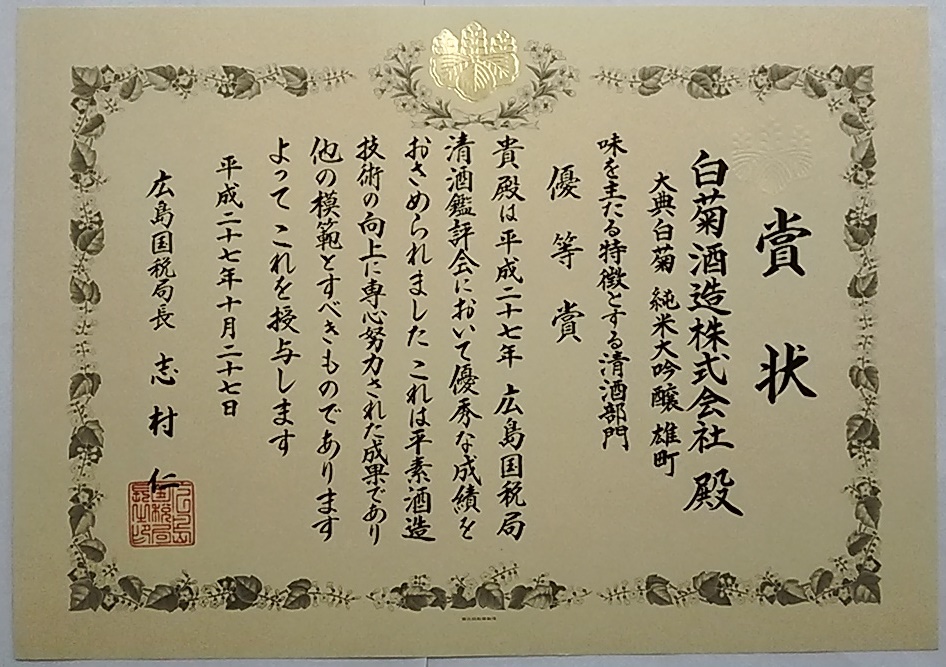 賞状
白菊酒造株式会社 殿
大典白菊 純米大吟醸 雄町
味を主たる特徴とする清酒部門
優等賞
貴殿は平成二十七年 広島国税局
清酒鑑評会において優秀な成績を
おさめられました これは平素酒造
技術の向上に専心努力された成果であり
他の模範とすべきものであります
よって これを授与します
平成二十七年十月二十七日
広島国税局長 志村 仁